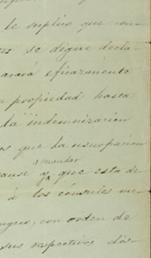 le suplico que con
se digne decla
rará eficazmente
propiedad hasta
la indemnización
os que la usurpación
ause ya que esta de
á los cónsules me
con orden de
sus respectivos dis